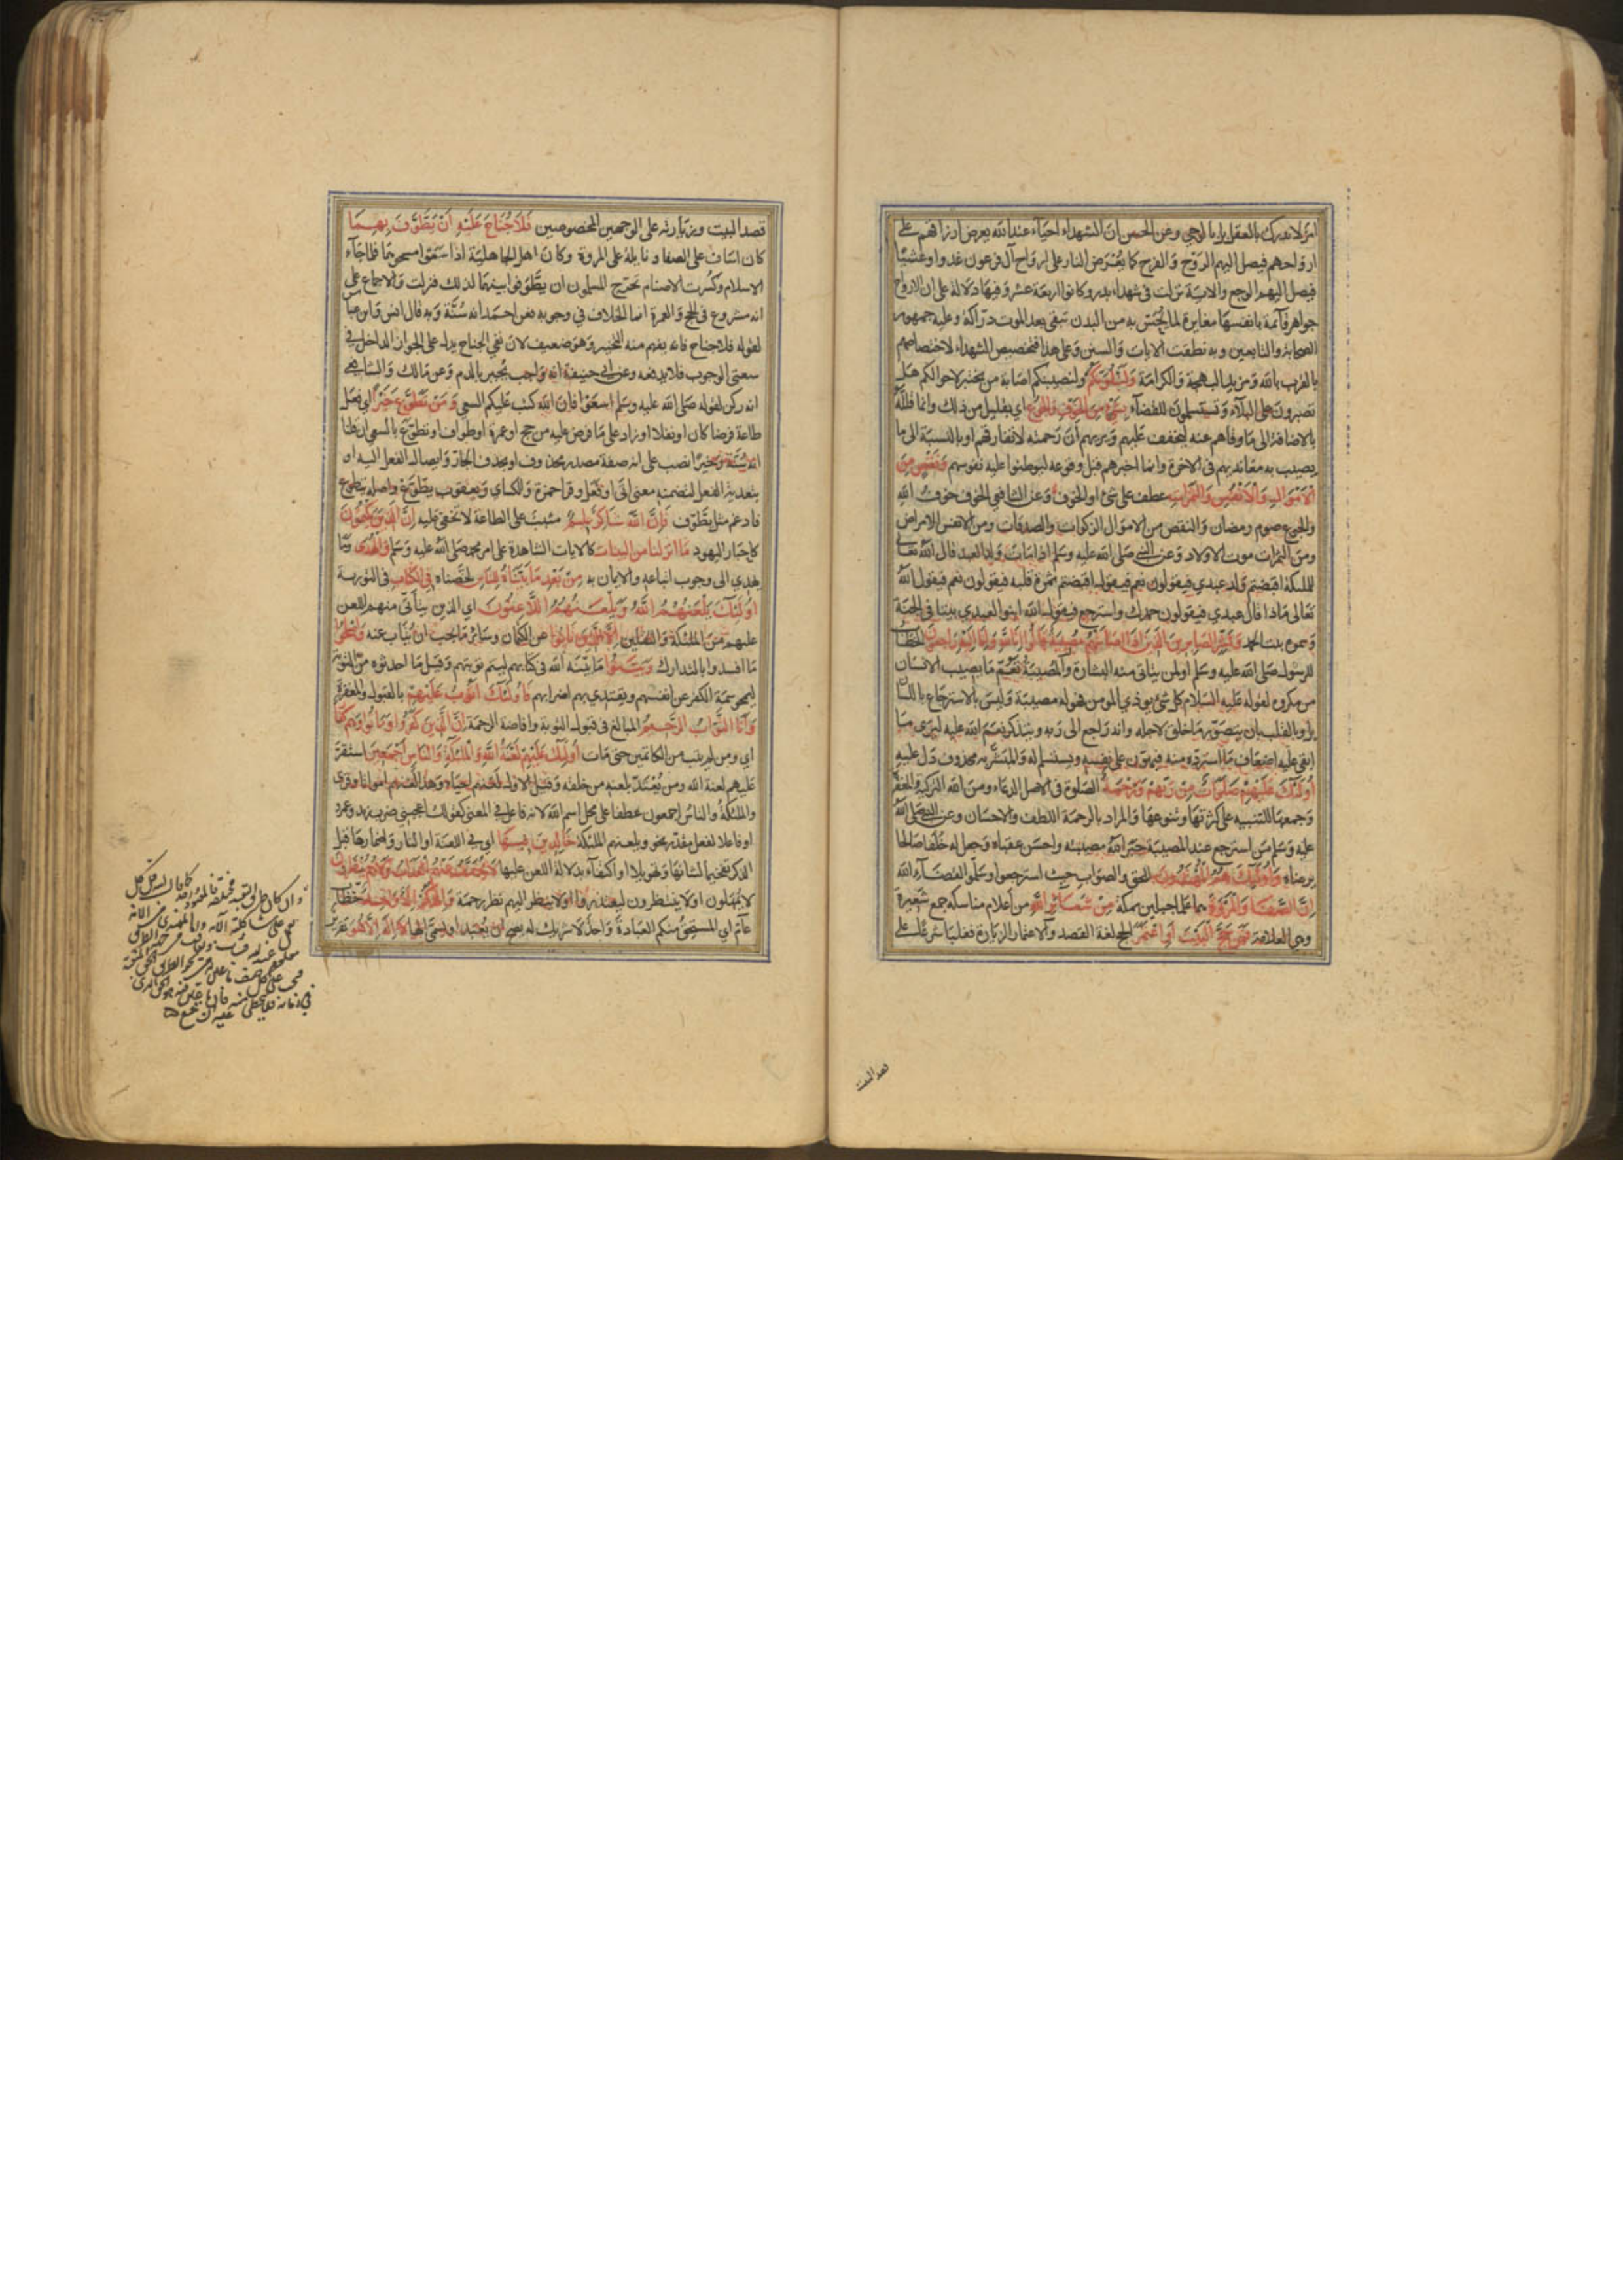 امر لا يدرك بالعقل بل بالوحي وعن الحسن ان الشهداء احياء عند الله يعرض ارزاقهم على
ارواحهم فيصل اليهم الروح والفرح كما يعرض النار على ارواح آل فرعون غدوا وعشيا
فيصل اليهم الوجع والاية نزلت في شهداء بدر وكانوا اربعة عشر وفيها دلالة على ان الارواح
جواهر قائمة بانفسها مغايرة لما يحس به من البدن تبقى بعد الموت دراكة وعليه جمهور
الصحابة والتابعين وبه نطقت الايات والسنن وعلى هذا فتخصيص الشهداء لاختصاصهم
بالقرب بالله ومزيد البهجة والكرامة وَلَنَبْلُوَنَّكُمْ ولنصيبنكم اصابة من يختبر لاحوالكم هل
تصبرون على البلاء وتستسلمون للقضاء بِشَيْءٍ مِنَ الْخَوْفِ وَالْجُوعِ اي بقليل من ذلك وانما قلله
بالاضافة الى ما وقاهم عنه ليخفف عليهم ويريهم ان رحمته لا تفارقهم او بالنسبة الى ما
يصيب به معانديهم في الاخرة وانما اخبرهم قبل وقوعه ليوطنوا عليه نفوسهم وَنَقْصٍ مِنَ
الْأَمْوَالِ وَالْأَنْفُسِ وَالثَّمَرَاتِ عطف على شئ او الخوف وعن الشافعي الخوف خوف الله
والجوع صوم رمضان والنقص من الاموال الزكوات والصدقات ومن الانفس الامراض
ومن الثمرات موت الاولاد وعن النبي صلى الله عليه وسلم اذا مات ولد العبد قال الله تعالى
للملئكة اقبضتم ولد عبدي فيقولون نعم فيقول اقبضتم ثمرة قلبه فيقولون نعم فيقول الله
تعالى ماذا قال عبدي فيقولون حمدك واسترجع فيقول الله ابنوا لعبدي بيتا في الجنة
وسموه بيت الحمد وَبَشِّرِ الصَّابِرِينَ الَّذِينَ إِذَا أَصَابَتْهُمْ مُصِيبَةٌ قَالُوا إِنَّا لِلَّهِ وَإِنَّا إِلَيْهِ رَاجِعُونَ الخطاب
للرسول صلى الله عليه وسلم او لمن يتأتى منه البشارة والمصيبة تعم ما يصيب الانسان
من مكروه لقوله عليه السلام كل شئ يوذي المومن فهو له مصيبة وليس بالاسترجاع باللسان
بل وبالقلب بان يتصور ما خلق لاجله وانه راجع الى ربه ويتذكر نعم الله عليه ليرى ما
ابقى عليه اضعاف ما استرده منه فيهون على نفسه ويستسلم له والمبشر به محذوف دل عليه
أُولَئِكَ عَلَيْهِمْ صَلَوَاتٌ مِنْ رَبِّهِمْ وَرَحْمَةٌ الصلوة في الاصل الدعاء ومن الله التزكية والمغفرة
وجمعها للتنبيه على كثرتها وتنوعها والمراد بالرحمة اللطف والاحسان وعن النبي صلى الله
عليه وسلم من استرجع عند المصيبة جبر الله مصيبته واحسن عقباه وجعل له خلفا صالحا
يرضاه وَأُولَئِكَ هُمُ الْمُهْتَدُونَ للحق والصواب حيث استرجعوا وسلموا لقضاء الله
إِنَّ الصَّفَا وَالْمَرْوَةَ هما علما جبلين بمكة مِنْ شَعَائِرِ اللَّهِ من اعلام مناسكه جمع شعيرة
وهي العلامة فَمَنْ حَجَّ الْبَيْتَ أَوِ اعْتَمَرَ الحج لغة القصد والاعتمار الزيارة فغلبا شرعا على
قصد البيت
قصد البيت وزيارته على الوجهين المخصوصين فَلَا جُنَاحَ عَلَيْهِ أَنْ يَطَّوَّفَ بِهِمَا
كان اساف على الصفا ونايلة على المروة وكان اهل الجاهلية اذا سعوا مسحوهما فلما جاء
الاسلام وكسرت الاصنام تحرج المسلمون ان يطوفوا بينهما لذلك فنزلت والاجماع على
انه مشروع في الحج والعمرة انما الخلاف في وجوبه فعن احمد انه سنة وبه قال انس وابن عباس
لقوله فلا جناح فانه يفهم منه التخيير وهو ضعيف لان نفي الجناح يدل على الجواز الداخل في
معنى الوجوب فلا يدفعه وعن ابي حنيفة انه واجب يجبر بالدم وعن مالك والشافعي
انه ركن لقوله صلى الله عليه وسلم اسعوا فان الله كتب عليكم السعي وَمَنْ تَطَوَّعَ خَيْرًا اي فعل
طاعة فرضا كان او نفلا او زاد على ما فرض عليه من حج او عمرة او طواف او تطوع بالسعي ان قلنا
انه سنة وخيرا نصب على انه صفة مصدر محذوف او بحذف الجار وايصال الفعل اليه او
بتعدية الفعل لتضمنه معنى اتى او فعل وقرا حمزة والكساي ويعقوب يطوع واصله يتطوع
فادغم مثل يطوف فَإِنَّ اللَّهَ شَاكِرٌ عَلِيمٌ مثيب على الطاعة لا تخفى عليه إِنَّ الَّذِينَ يَكْتُمُونَ
كاحبار اليهود مَا أَنْزَلْنَا مِنَ الْبَيِّنَاتِ كالايات الشاهدة على امر محمد صلى الله عليه وسلم وَالْهُدَى وما
يهدي الى وجوب اتباعه والايمان به مِنْ بَعْدِ مَا بَيَّنَّاهُ لِلنَّاسِ لخصناه فِي الْكِتَابِ في التورية
أُولَئِكَ يَلْعَنُهُمُ اللَّهُ وَيَلْعَنُهُمُ اللَّاعِنُونَ اي الذين يتأتى منهم اللعن
عليهم من الملئكة والثقلين إِلَّا الَّذِينَ تَابُوا عن الكتمان وسائر ما يجب ان يتاب عنه وَأَصْلَحُوا
ما افسدوا بالتدارك وَبَيَّنُوا ما بينه الله في كتابهم ليتم توبتهم وقيل ما احدثوه من التوبة
ليمحو سمة الكفر عن انفسهم ويقتدي بهم اضرابهم فَأُولَئِكَ أَتُوبُ عَلَيْهِمْ بالقبول والمغفرة
وَأَنَا التَّوَّابُ الرَّحِيمُ المبالغ في قبول التوبة وافاضة الرحمة إِنَّ الَّذِينَ كَفَرُوا وَمَاتُوا وَهُمْ كُفَّارٌ
اي ومن لم يتب من الكاتمين حتى مات أُولَئِكَ عَلَيْهِمْ لَعْنَةُ اللَّهِ وَالْمَلَئِكَةِ وَالنَّاسِ أَجْمَعِينَ استقر
عليهم لعنة الله ومن يعتد بلعنه من خلقه وقيل الاول لعنهم احياء وهذا لعنهم امواتا وقرئ
والملئكة والناس اجمعون عطفا على محل اسم الله لانه فاعل في المعنى كقولك اعجبني ضرب زيد وعمرو
او فاعلا لفعل مقدر نحو ويلعنهم الملئكة خَالِدِينَ فِيهَا اي في اللعنة او النار واضمارها قبل
الذكر تفخيما لشانها وتهويلا او اكتفاء بدلالة اللعن عليها لَا يُخَفَّفُ عَنْهُمُ الْعَذَابُ وَلَا هُمْ يُنْظَرُونَ
لا يمهلون او لا ينتظرون ليعتذروا او لا ينظر اليهم نظر رحمة وَإِلَهُكُمْ إِلَهٌ وَاحِدٌ خطاب
عام اي المستحق منكم العبادة واحد لا شريك له يصح ان يعبد او يسمى الها لَا إِلَهَ إِلَّا هُوَ تقرير